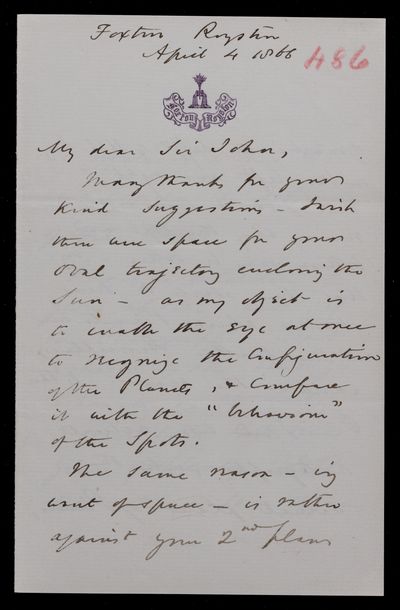 Foxton Royston
April 4 1866
486
FOXTON ROYSTON
My dear Sir John,
Many thanks for your
kind suggestions – I wish
there were space for your
oval trajectory enclosing the
Sun – as my object is
to enable the eye at once
to recognize the Configuration
of the Planets, & Compare
it with the "behaviour"
of the Spots.
The same reason – viz
want of space – is rather
against your 2nd plan